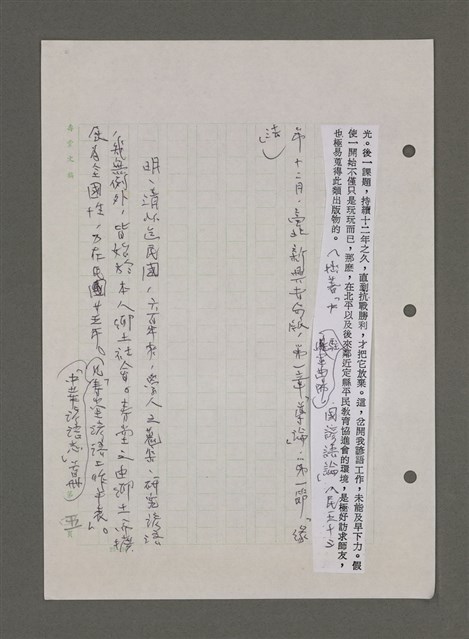 光。後一課題，持續十二年之久，直到抗戰勝利，才把它放棄。這，岔開我諺語工作，未能及早下力。假
使一開始不僅只是玩玩而已，那麼，在北平以及後來鄰近定縣平民教育協進會的環境，是極好訪求師友，
也極易蒐得此類出版物的。
中國諺語論 民五十三
年十二月，臺北新興書局版，第一章「導論」，第一節「緣
法」
明、清以迄民國，六百年來，學人之蒐集、研究諺語
，幾無例外，皆始於本人鄉土社會。壽堂又由鄉土而擴
展為全國性，乃在民國廿五年。
「中華諺語志」首冊
五
壽堂文稿